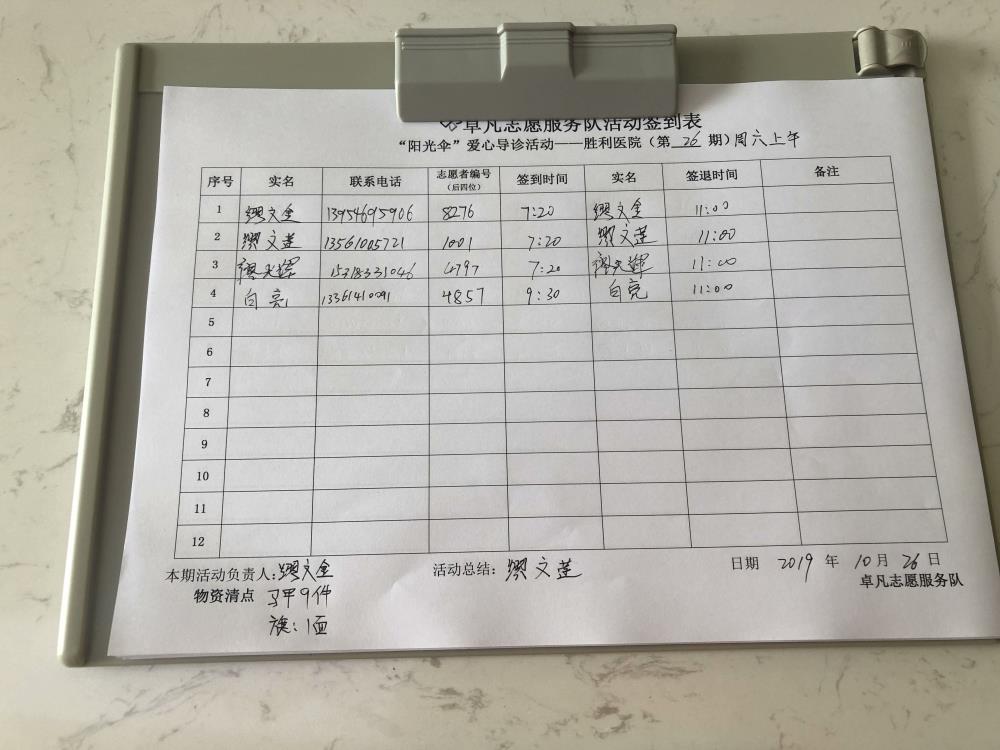 卓凡志愿服务队活动签到表
“阳光伞”爱心导诊活动——胜利医院（第 26 期）周六上午
序号 实名 联系电话 志愿者编号（后四位） 签到时间 实名 签退时间 备注
1 缪文金 13954695906 8276 7:20 缪文金 11:00
2 缪文莲 13561005721 1001 7:20 缪文莲 11:00
3 15318331046 4797 7:20 11:00
4 白亮 13361410091 4857 9:30 白亮 11:00
5
6
7
8
9
10
11
12
本期活动负责人：缪文金 活动总结：缪文莲 日期 2019 年 10 月 26 日
卓凡志愿服务队
物资清点 马甲9件
旗：1面